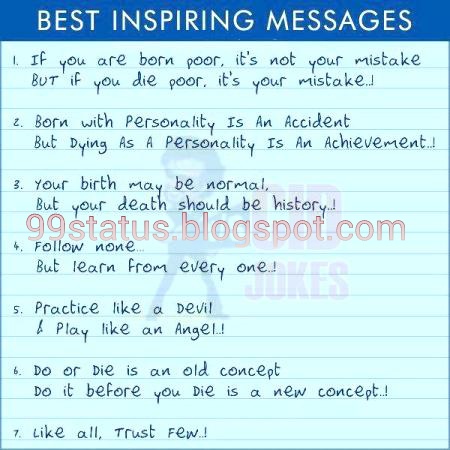 BEST INSPIRING MESSAGES
1. If you are born poor, it's not your mistake
BUT if you die poor, it's your mistake..!
2. Born with Personality Is An Accident
But Dying As A Personality Is An Achievement..!
3. Your birth may be normal,
But your death should be history..!
99status.blogspot.com
4. Follow none...
But learn from every one..!
JOKES
5. Practice like a Devil
& Play like an Angel..!
6. Do or Die is an old concept
Do it before you Die is a new concept..!
7. Like all, Trust Few..!